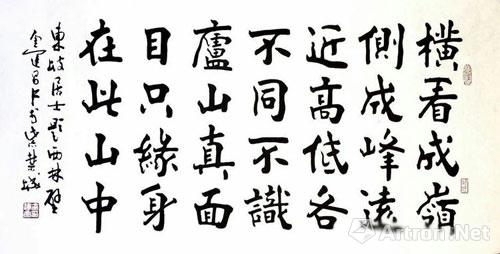 橫看成嶺
側成峰遠
近高低各
不同不識
廬山真面
目只緣身
在此山中
東坡居士題西林壁
Artron.Net